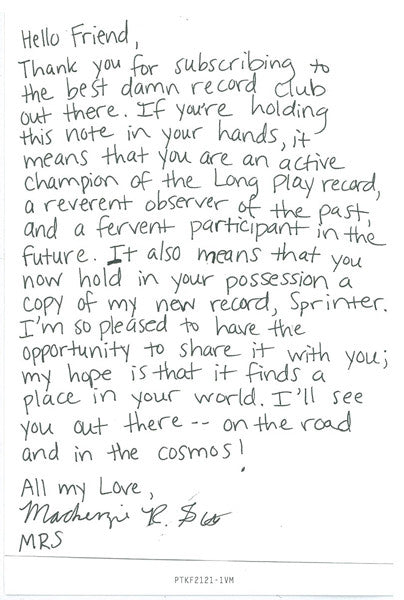 Hello Friend,
Thank you for subscribing to
the best damn record club
out there. If you're holding
this note in your hands, it
means that you are an active
champion of the Long Play record,
a reverent observer of the past,
and a fervent participant in the
future. It also means that you
now hold in your possession a
copy of my new record, Sprinter.
I'm so pleased to have the
opportunity to share it with you;
my hope is that it finds a
place in your world. I'll see
you out there -- on the road
and in the cosmos!
All my Love,
Mackenzie R.
MRS
PTKF2121-1VM